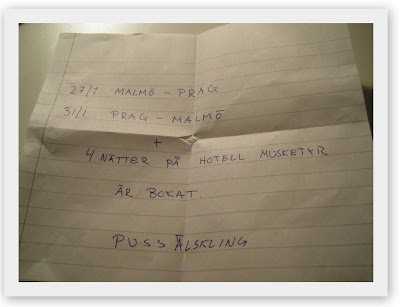 27/1 MALMÖ – PRAG
31/1 PRAG – MALMÖ
+
4 NÄTTER PÅ HOTELL MUSKETYR
ÄR BOKAT.
PUSS ÄLSKLING